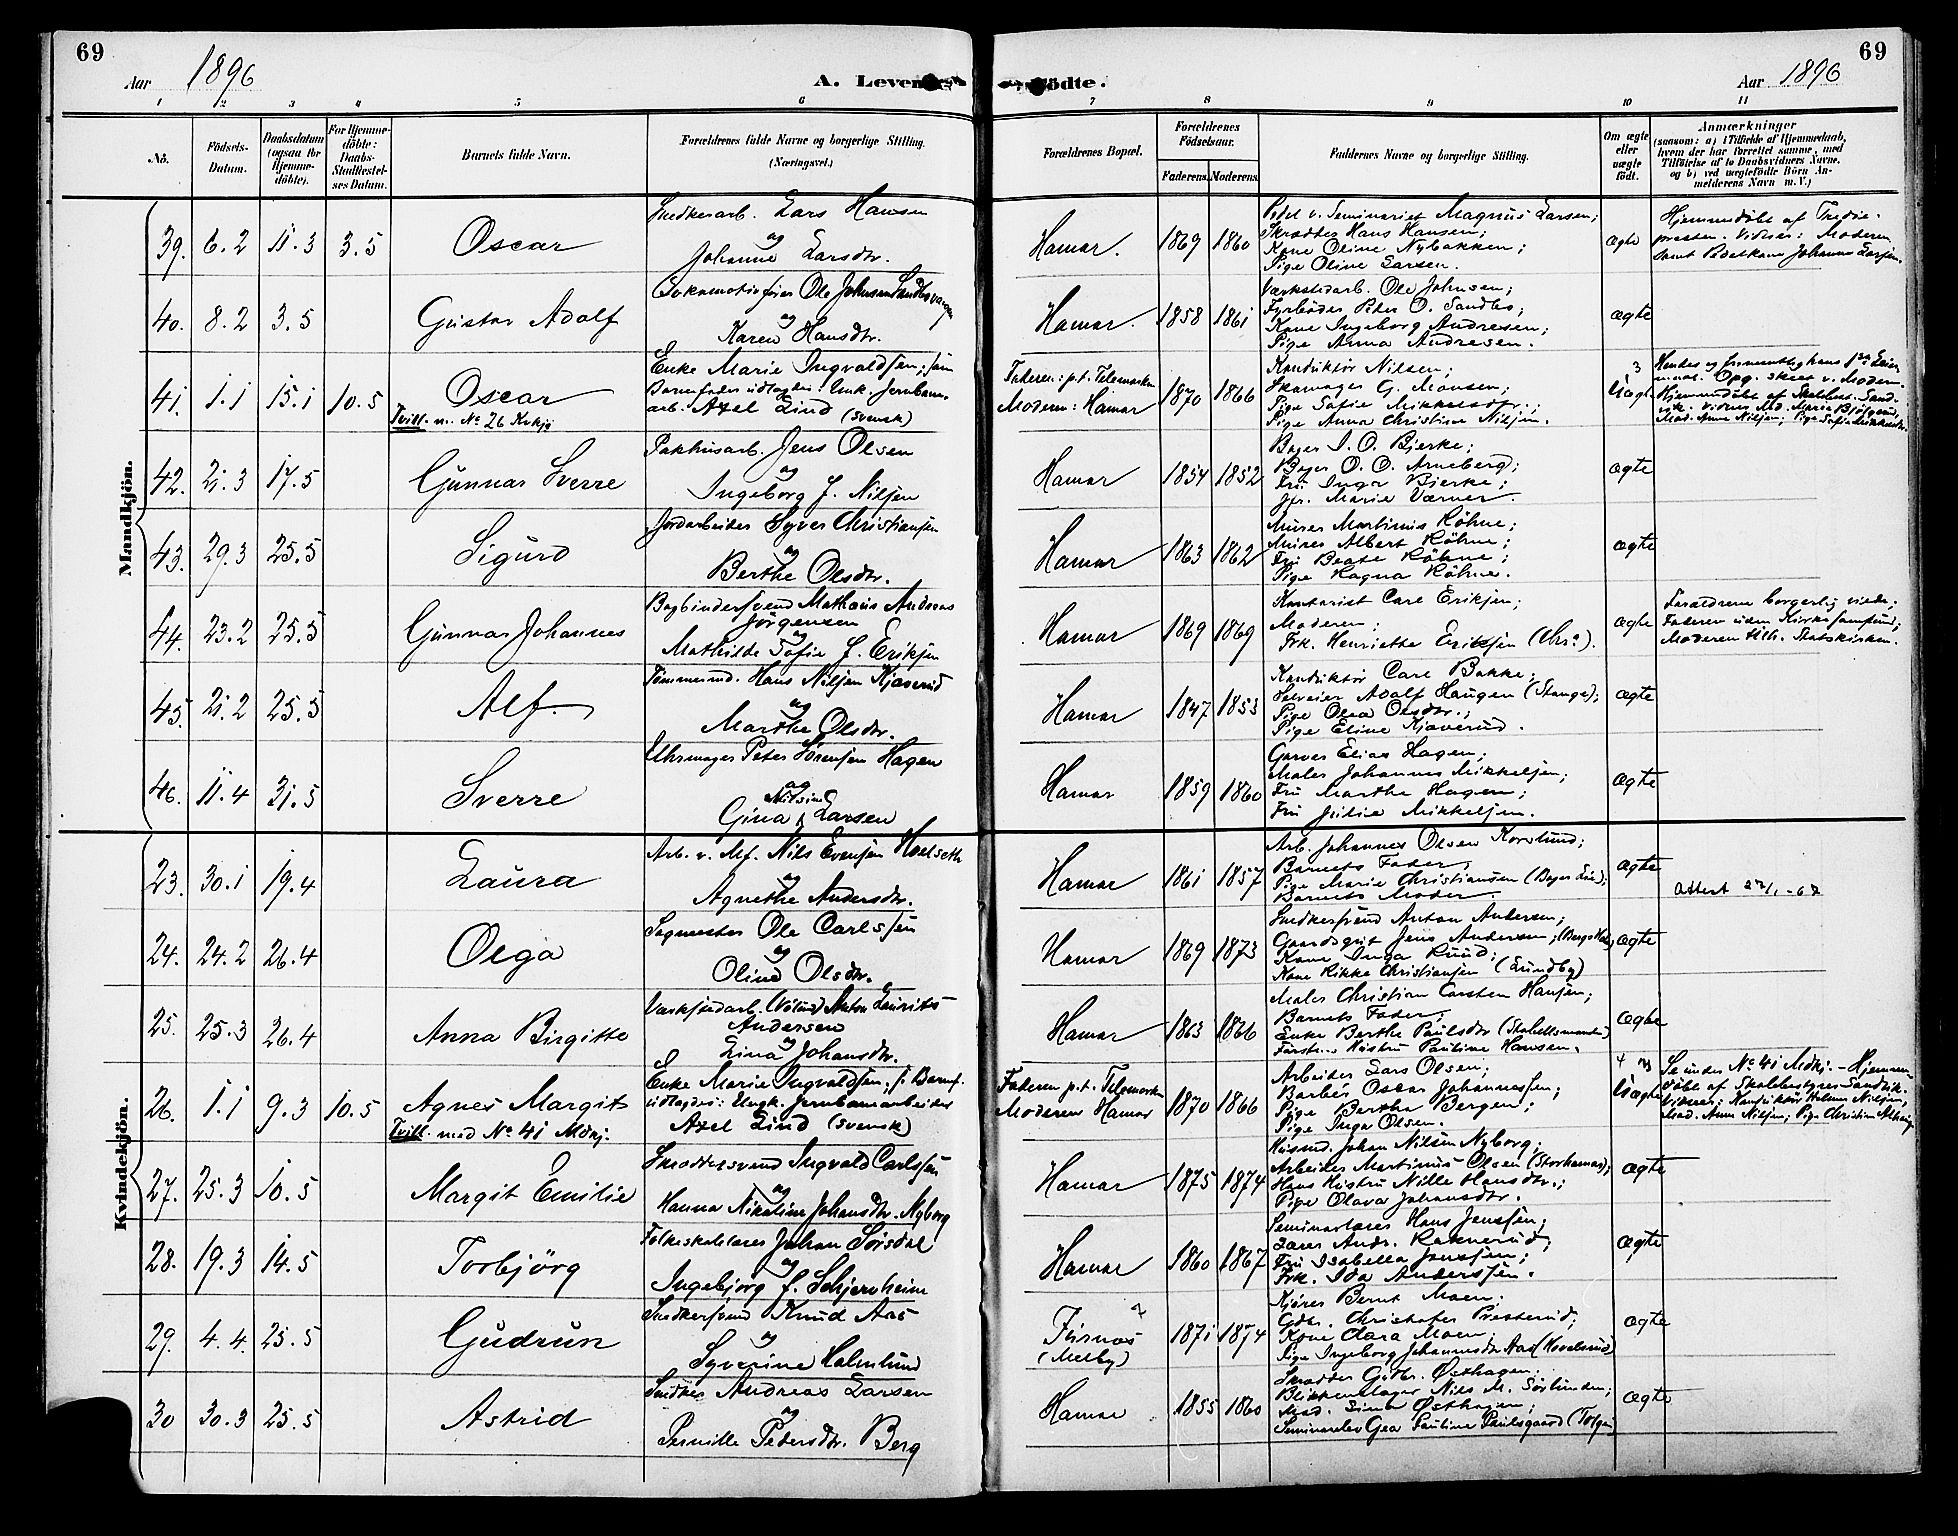 69
Aar 1896
A. Levende
fødte.
Aar 1896
69
1 2 3 4 5 6 7 8 9 10 11
No.
Fødsels-Datum.
Daabsdatum (ogsaa for Hjemmedöbte).
For Hjemmedöbte: Daabs-Stadfæstelses Datum.
Barnets fulde Navn.
Forældrenes fulde Navne og borgerlige Stilling. (Næringsvei.)
Forældrenes Bopæl.
Forældrenes Födselsaar.
Faderens. Moderens.
Faddernes Navne og borgerlige Stilling.
Om ægte eller uægte födt.
Anmærkninger
(saasom: a) i Tilfælde af Hjemmedaab, hvem der har forrettet samme, med Tilföielse af to Daabsvidners Navne, og b) ved uægtefödte Börn Anmelderens Navn m. V.)
Mandkjön.
39. 6.2 11.3 3.5 Oscar
Snedkerarb. Lars Hansen
og
Johanne Larsdtr.
Hamar. 1869 1860
Pedel v. Seminariet Magnus Larsen;
Skrædder Hans Hansen;
Kone Oline Nybakken;
Pige Oline Larsen.
ægte
Hjemmedöbt af
presten. Vidner: Moderen
samt Pedelkone Johanne Larsen.
40. 8.2 3.5 Gustav Adolf
Ole Johnsen
og
Karen Hansdtr.
Hamar. 1858 1861
Værkstedarb. Ole Johnsen;
Fyrböder Peter O. Sandbo;
Kone Ingeborg Andresen;
Pige Anna Andresen.
ægte
41. 1.1 15.1 10.5 Oscar
Tvill. m. No 26 Kvkjø
Enke Marie Ingvaldsen; som
Barnefader udlagdes: Ungk. Jernbane-
arb. Axel Lind (svensk)
Faderen: p.t. Telemarken
Moderen: Hamar
1870 1866
Konduktör Nilsen;
Skomager G. Monsen;
Pige Sofie Mikkelsdtr.;
Pige Anna Christine Nilsen.
3
Uægte
Hjemmedöbt af Skolebest. Sand-
vik.
42. 21.3 17.5 Gunnar Sverre
Pakhusarb. Jens Olsen
og
Ingeborg J. Nilsen
Hamar 1854 1852
Bager I. O. Bjerke;
Bager O. O. Arneberg;
Fru Inga Bjerke;
Jfr. Marie Værner.
ægte
43. 29.3 25.5 Sigurd
Jordarbeider Syver Christiansen
og
Berthe Olsdtr.
Hamar 1863 1862
Murer Martinus Köhne;
Murer Albert Köhne;
Fru Beate Köhne;
Pige Ragna Köhne.
ægte
44. 23.2 25.5 Gunnar Johannes
Bogbindersvend Mathæus Andreas
Jörgensen
og
Mathilde Sofie J. Eriksen
Hamar 1869 1869
Kontorist Carl Eriksen;
Moderen;
Frk. Henriette Eriksen (Chra.).
ægte
Forældrene borgerlig viede;
Faderen uden Kirkesamfund;
Moderen tilh. Statskirken.
45. 21.2 25.5 Alf.
Tömmermd. Hans Nilsen Kjæverud
og
Marthe Olsdtr.
Hamar 1847 1853
Konduktör Carl Bakke;
Selveier Adolf Haugen (Stange);
Pige Olea Olsdtr.;
Pige Eline Kjæverud.
ægte
46. 11.4 31.5 Sverre
Uhrmager Peter Sörensen Hagen
og
Nilsine
Gina Larsen
Hamar 1859 1860
Garver Elias Hagen;
Maler Johannes Mikkelsen;
Fru Marthe Hagen;
Fru Julie Mikkelsen.
ægte
Kvindekjön.
23. 30.1 19.4 Laura
Arb. v. Mf. Nils Evensen Hvelseth
og
Agnethe Andersdtr.
Hamar 1861 1857
Arb. Johannes Olsen Korslund;
Barnets Fader;
Pige Marie Christiansen (Bager Lie);
Barnets Moder
ægte
Attest
24. 24.2 26.4 Olga
Sagmester Ole Carlssen
og
Oline Olsdtr.
Hamar 1869 1873
Snedkersvend Anton Andersen;
Gaardsgut Jens Andersen;
Kone Inga Ruud;
Kone Rikke Christiansen (Lundby)
ægte
25. 25.3 26.4 Anna Birgitte
Værkstedarb. Anton Laurits
Andersen
og
Lina Johansdtr.
Hamar 1863 1866
Maler Christian Carsten Hansen;
Barnets Fader;
Enke Berthe Paulsdtr
Hustru Pauline Hansen.
ægte
26. 1.1 9.3 10.5 Agnes Margit
Tvill. med No 41 Mdkj.
Enke Marie Ingvaldsen; s. Barnef.
udlagdes: Ungk. Jernbanearbeider
Axel Lind (svensk)
Faderen p.t. Telemarken
Moderen Hamar
1870 1866
Arbeider Lars Olsen;
Barbér Oscar Johannessen;
Pige Berthe Bergen;
Pige Inga Olsen.
4
Uægte
Se under No 41 Mdkj. - Hjemme-
döbt af Skolebestyrer Sandvik.
Vidner: Konduktör Helmer Nilsen,
Mad. Anne Nilsen; Pige Christine
27. 25.3 10.5 Margit Emilie
Skræddersvend Ingvald Carlssen
og
Hanna Nikoline Johansdtr. Nyborg
Hamar 1875 1874
Husmd. Johan Nilsen Nyborg;
Arbeider Martinus Olsen (Storhamar);
Hans Hustru Nille Hansdtr.;
Pige Olava Johansdtr.
ægte
28. 19.3 14.5 Torbjörg
Folkeskolelærer Johan Sörsdal
og
Ingebjörg J. Schjernheim
Hamar 1860 1867
Seminarlærer Hans Jenssen;
Lærer Andr. Raknerud;
Fru Isabella Jenssen;
Frk. Ida Anderssen.
ægte
29. 4.4 25.5 Gudrun
Snedkersvend Knud Aas
og
Syverine Holmlund
Furnæs
(Melby)
1871 1874
Kjörer Bernt Moen;
Gdbr. Christofer Presterud;
Kone Clara Moen;
Pige Ingeborg Johannesdtr Aas
ægte
30 30.3 25.5 Astrid
Snedker Andreas Larsen
og
Pernille Pedersdtr. Berg
Hamar 1855 1860
Skrædder Gilbr. Østhagen;
Blikkenslager Nils M. Sörlunden;
Mad. Sina Østhagen;
Seminarelev Gea Pauline Paulsgaard (Tolgen)
ægte